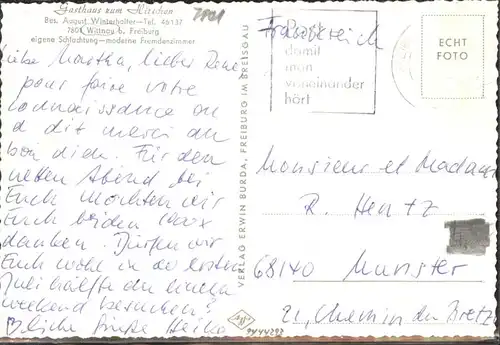 Gasthaus zum Hirschen
Bes. August Winterhalter – Tel. 46137
7801 Wittnau b. Freiburg
eigene Schlachtung – moderne Fremdenzimmer
7801
Liebe Martha, lieber René,
pour faire votre
connaissance on
a dit merci au
bon dieu. Für den
netten Abend bei
Euch möchten wir
Euch beiden
danken. Dürfen wir
Euch wohl in der ersten
Juli hälfte an einem
weekend besuchen?
liche Grüße Heike
VERLAG ERWIN BURDA, FREIBURG IM BREISGAU
Frankreich
damit
man
voneinander
hört
ECHT
FOTO
Monsieur et Madame
R. Hentz
68140 Munster
21, Chemin du
9444292